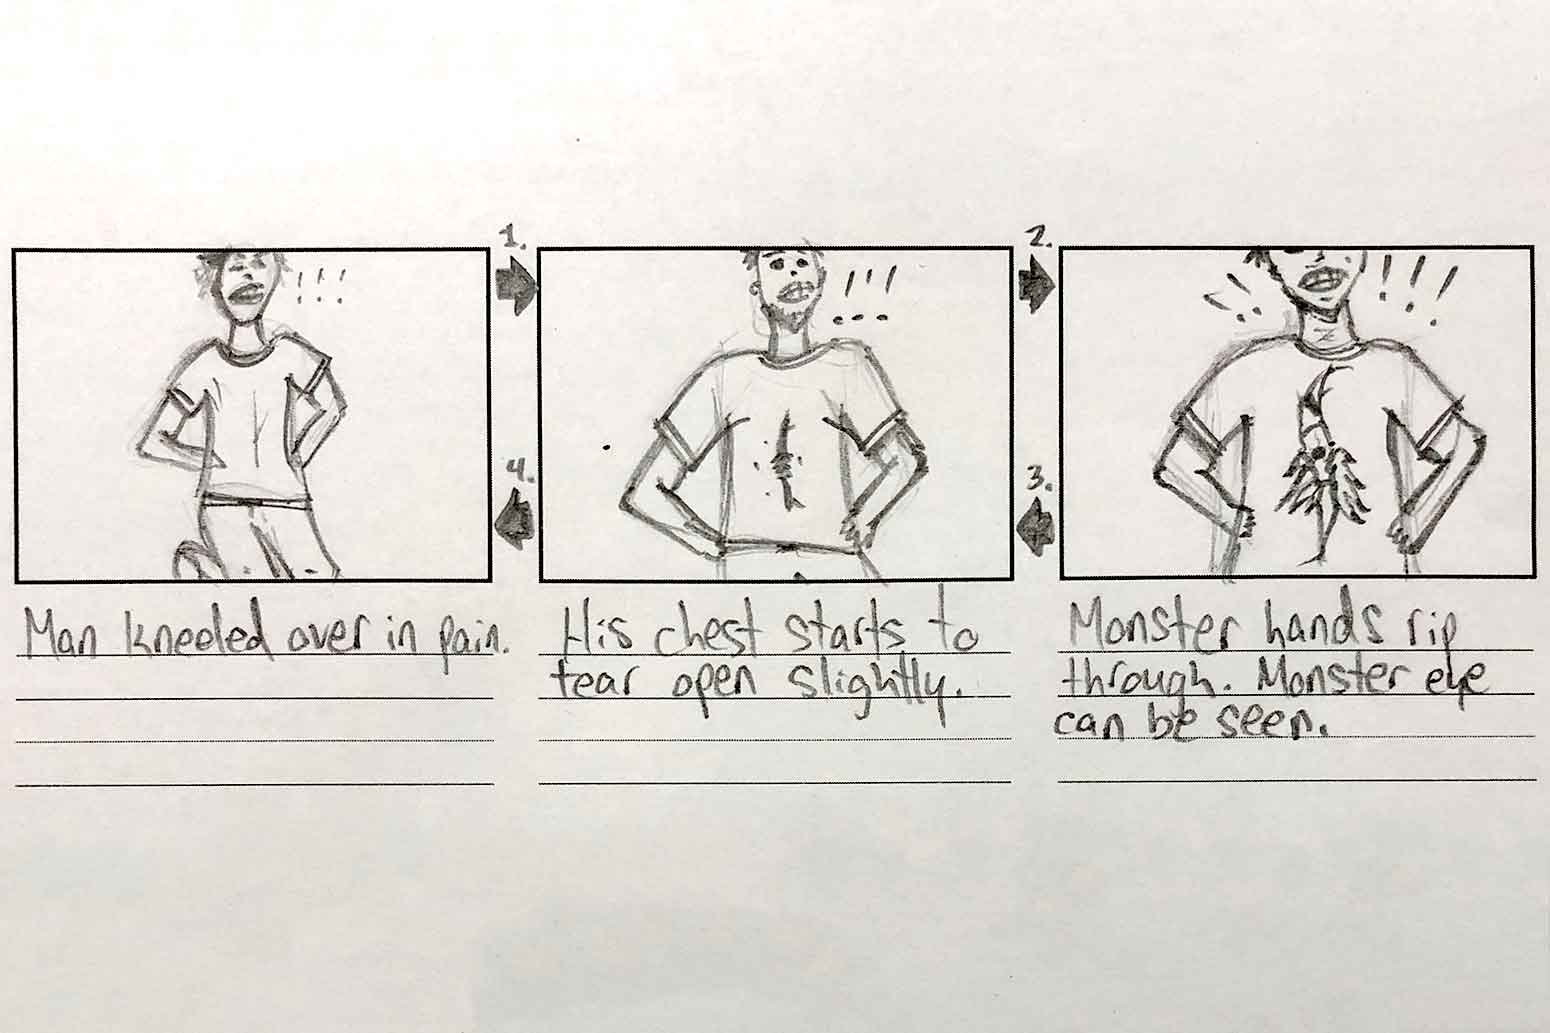 1.
2.
!!!
!!!
!!!
4.
3.
Man kneeled over in pain.
His chest starts to
tear open slightly.
Monster hands rip
through. Monster eye
can be seen.